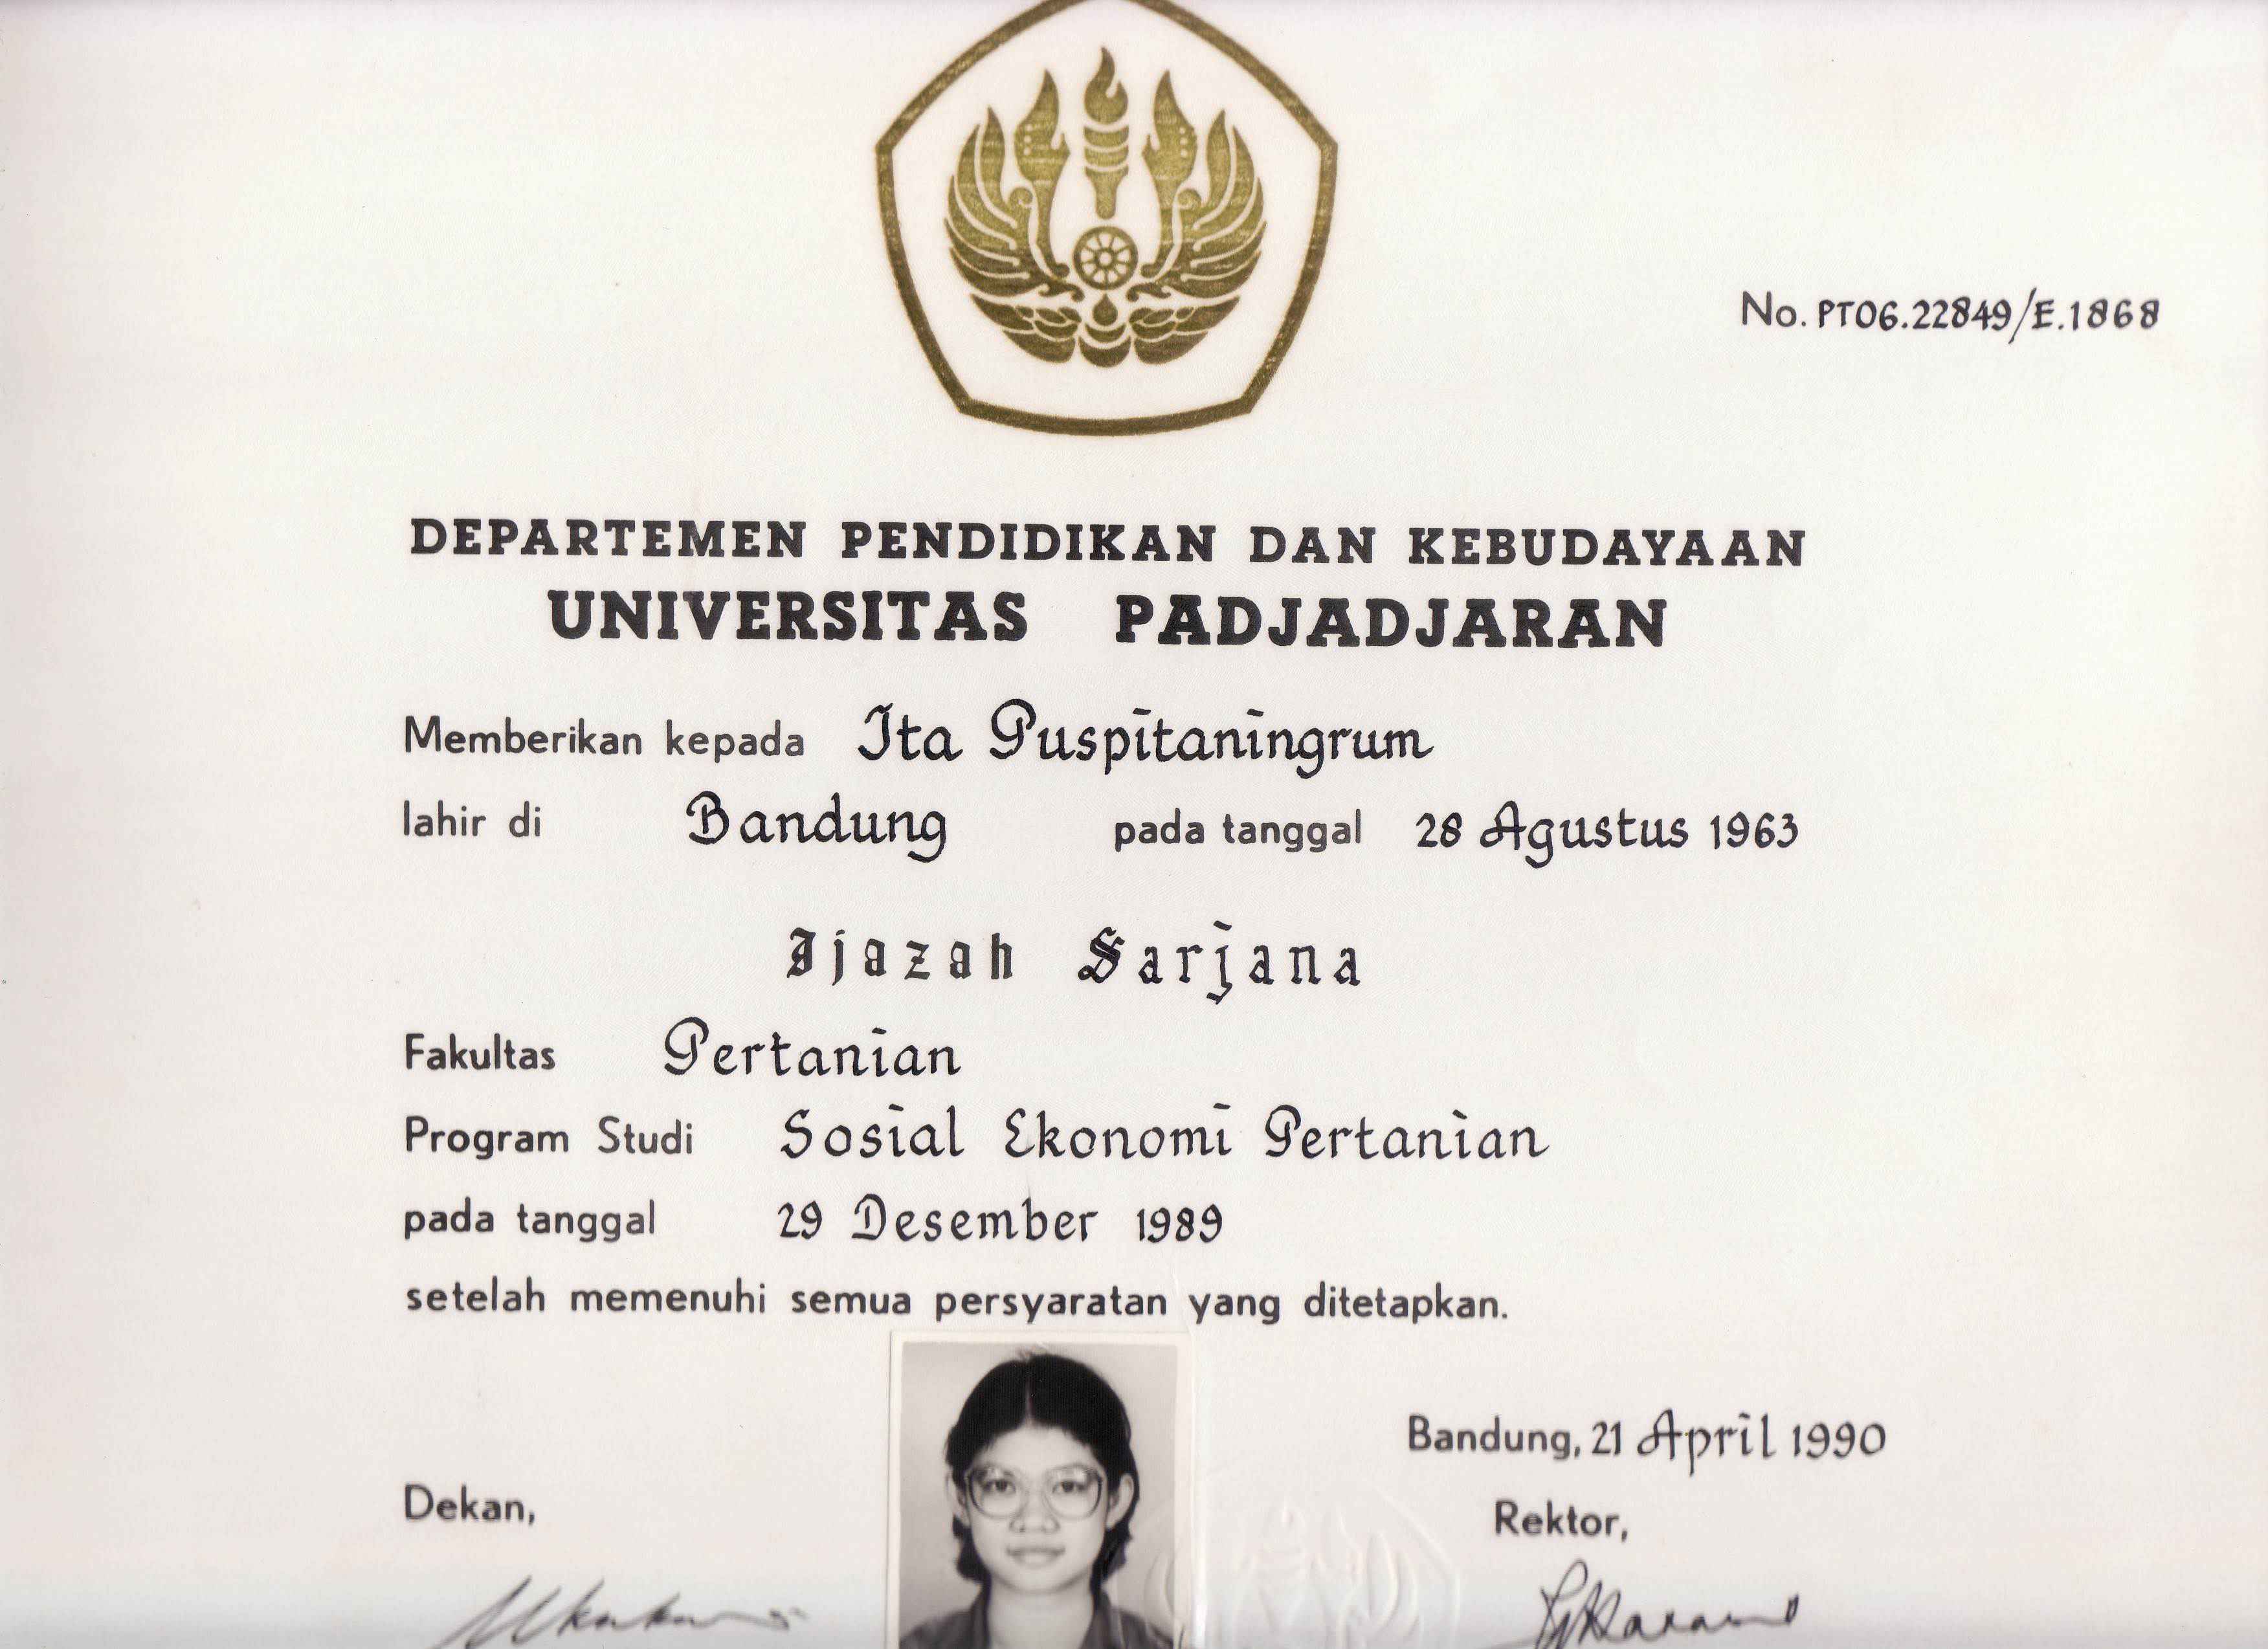 No. PT06.22849/E.1868
DEPARTEMEN PENDIDIKAN DAN KEBUDAYAAN
UNIVERSITAS PADJADJARAN
Memberikan kepada Ita Puspitaningrum
lahir di Bandung pada tanggal 28 Agustus 1963
Ijazah Sarjana
Fakultas Pertanian
Program Studi Sosial Ekonomi Pertanian
pada tanggal 29 Desember 1989
setelah memenuhi semua persyaratan yang ditetapkan.
Bandung, 21 April 1990
Dekan,
Rektor,